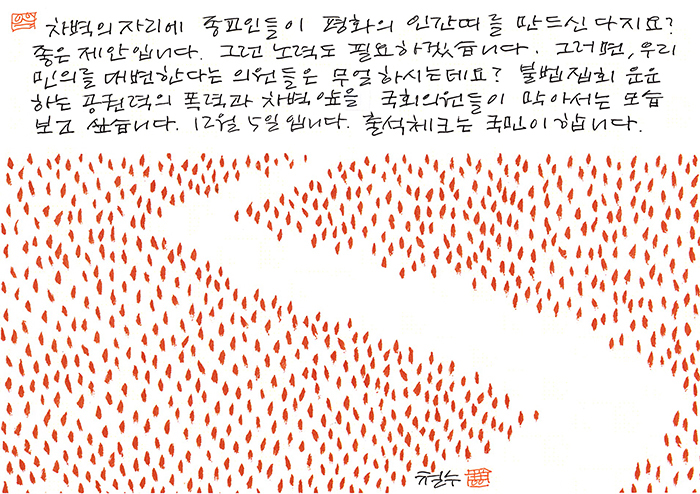 차벽의 자리에 종교인들이 평화의 인간띠를 만드신다지요?
좋은 제안입니다. 그런 노력도 필요하겠습니다. 그러면, 우리
민의를 대변한다는 의원들은 무얼 하시는데요? 불법집회 운운
하는 공권력의 폭력과 차벽 앞을 국회의원들이 막아서는 모습
보고 싶습니다. 12월 5일입니다. 출석체크는 국민이 합니다.
철수